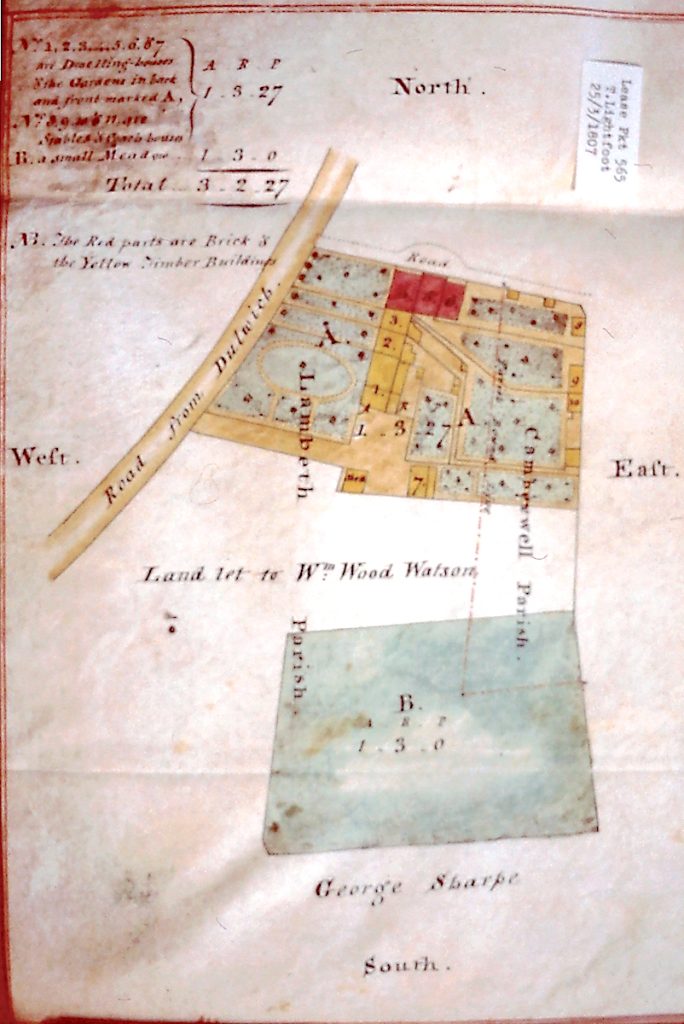 Nos. 1, 2, 3, 4, 5, 6, & 7
are Dwelling-houses
& the Gardens in back
and front marked A,
A R P
1 . 3 . 27
Stables & Coach houses
B. a small Meadow .. 1 . 3 . 0
Total .. 3 . 2 . 27
NB. The Red parts are Brick &
the Yellow Timber Buildings
North .
Lease Pkt 565
T.Lightfoot
25/3/1807
Road
Road from Dulwich.
A.
3.
2.
1.
9
9
A R
1 . 3 27
A
7.
West.
East.
Lambeth
Parish.
Camberwell Parish.
Land let to Wm. Wood Watson
B.
A R P
1 . 3 . 0
George Sharpe
South .